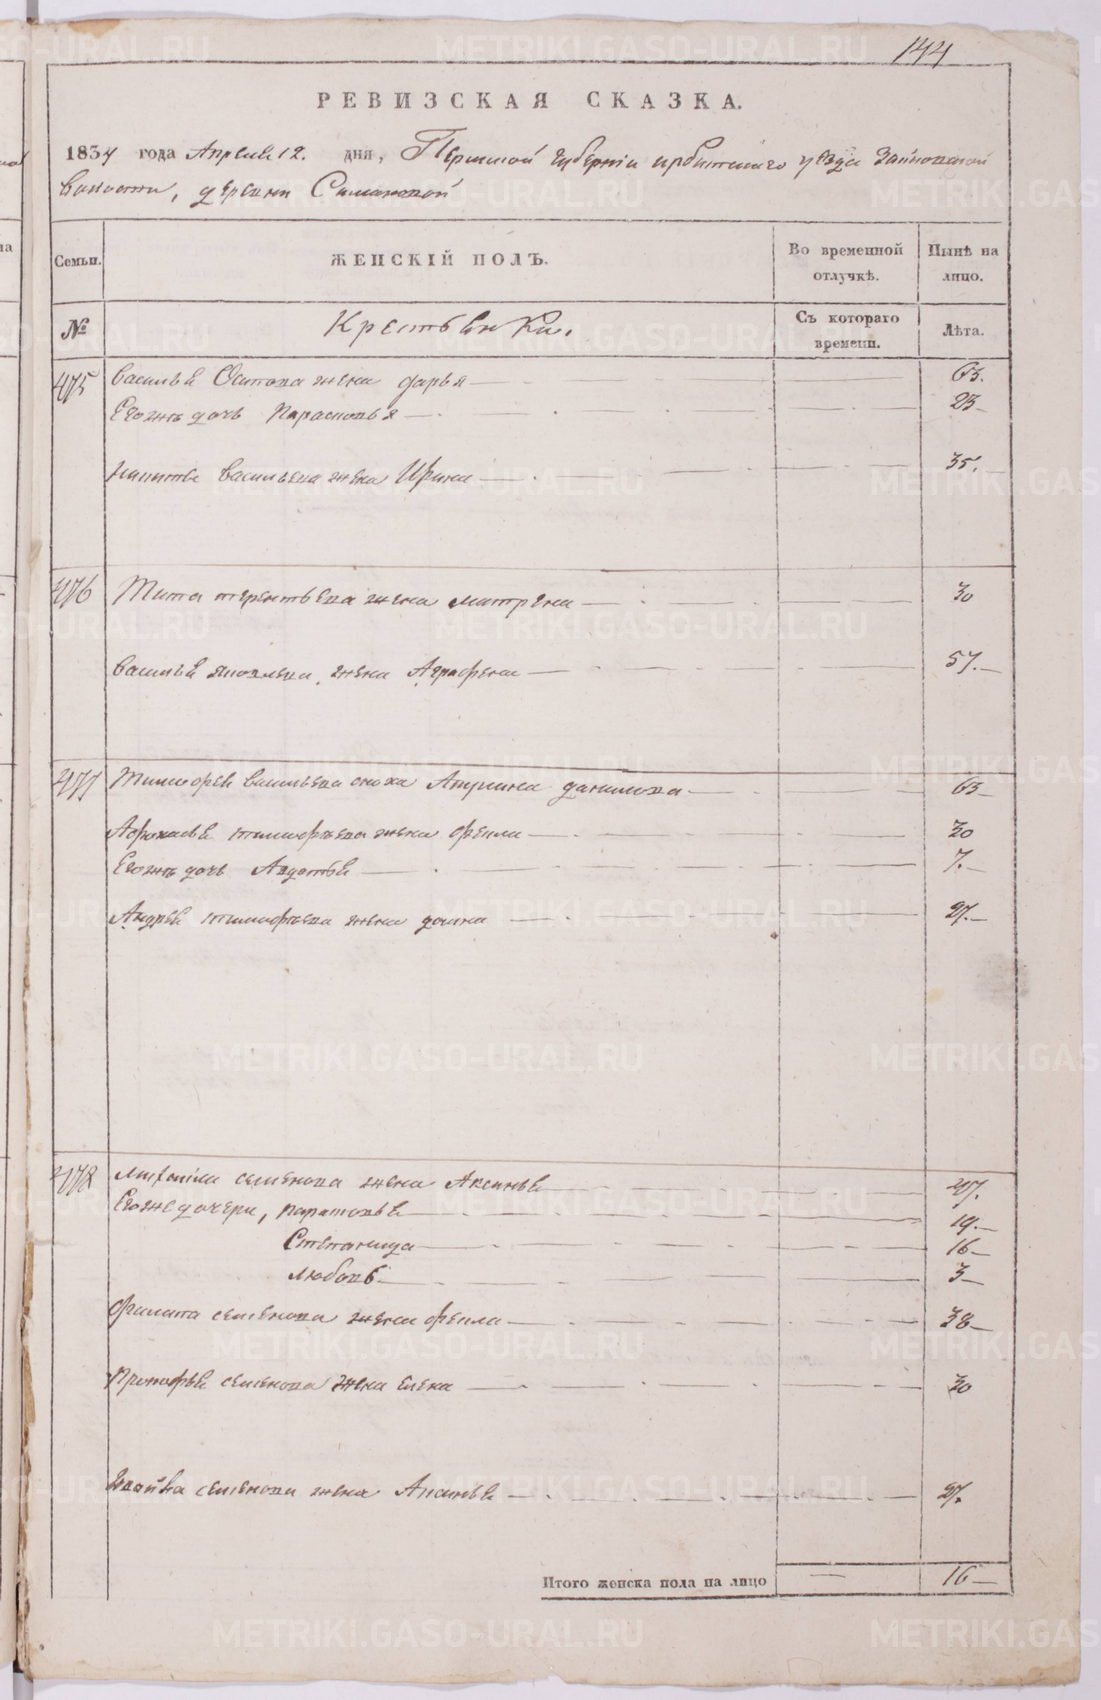 144
РЕВИЗСКАЯ СКАЗКА.
1834 года Апреля 12. дня, Пермской губернiи ирбитскаго уезда Зайковской
волости, деревни
Семьи. ЖЕНСКIЙ ПОЛЪ. Во временной отлучкѣ. Нынѣ на лицо.
№ Крестьянки. Съ котораго времени. Лѣта.
475 Василья Осипова жена дарья 63.
Егожъ дочь Парасковья 23
никиты Васильева жена Ирина 35.
476 Тита терентьева жена матрена 30
Василья яковлева жена Аграфена 57.
477 Тимофея Васильева сноха Акулина данилова 63
Афонасья тимофѣева жена фекла 30
Егожъ дочь Авдотья 7.
Андрея тимофѣева жена 27.
478 семенова жена Аксинья 47.
Егоже дочери, парасковья 19.
Степанида 16
любовь 3
Филипа семенова жена фекла 38
Прокофья семенова жена елена 30
семенова жена Аксинья 27.
Итого женска пола на лицо — 16
METRIKI.GASO-URAL.RU